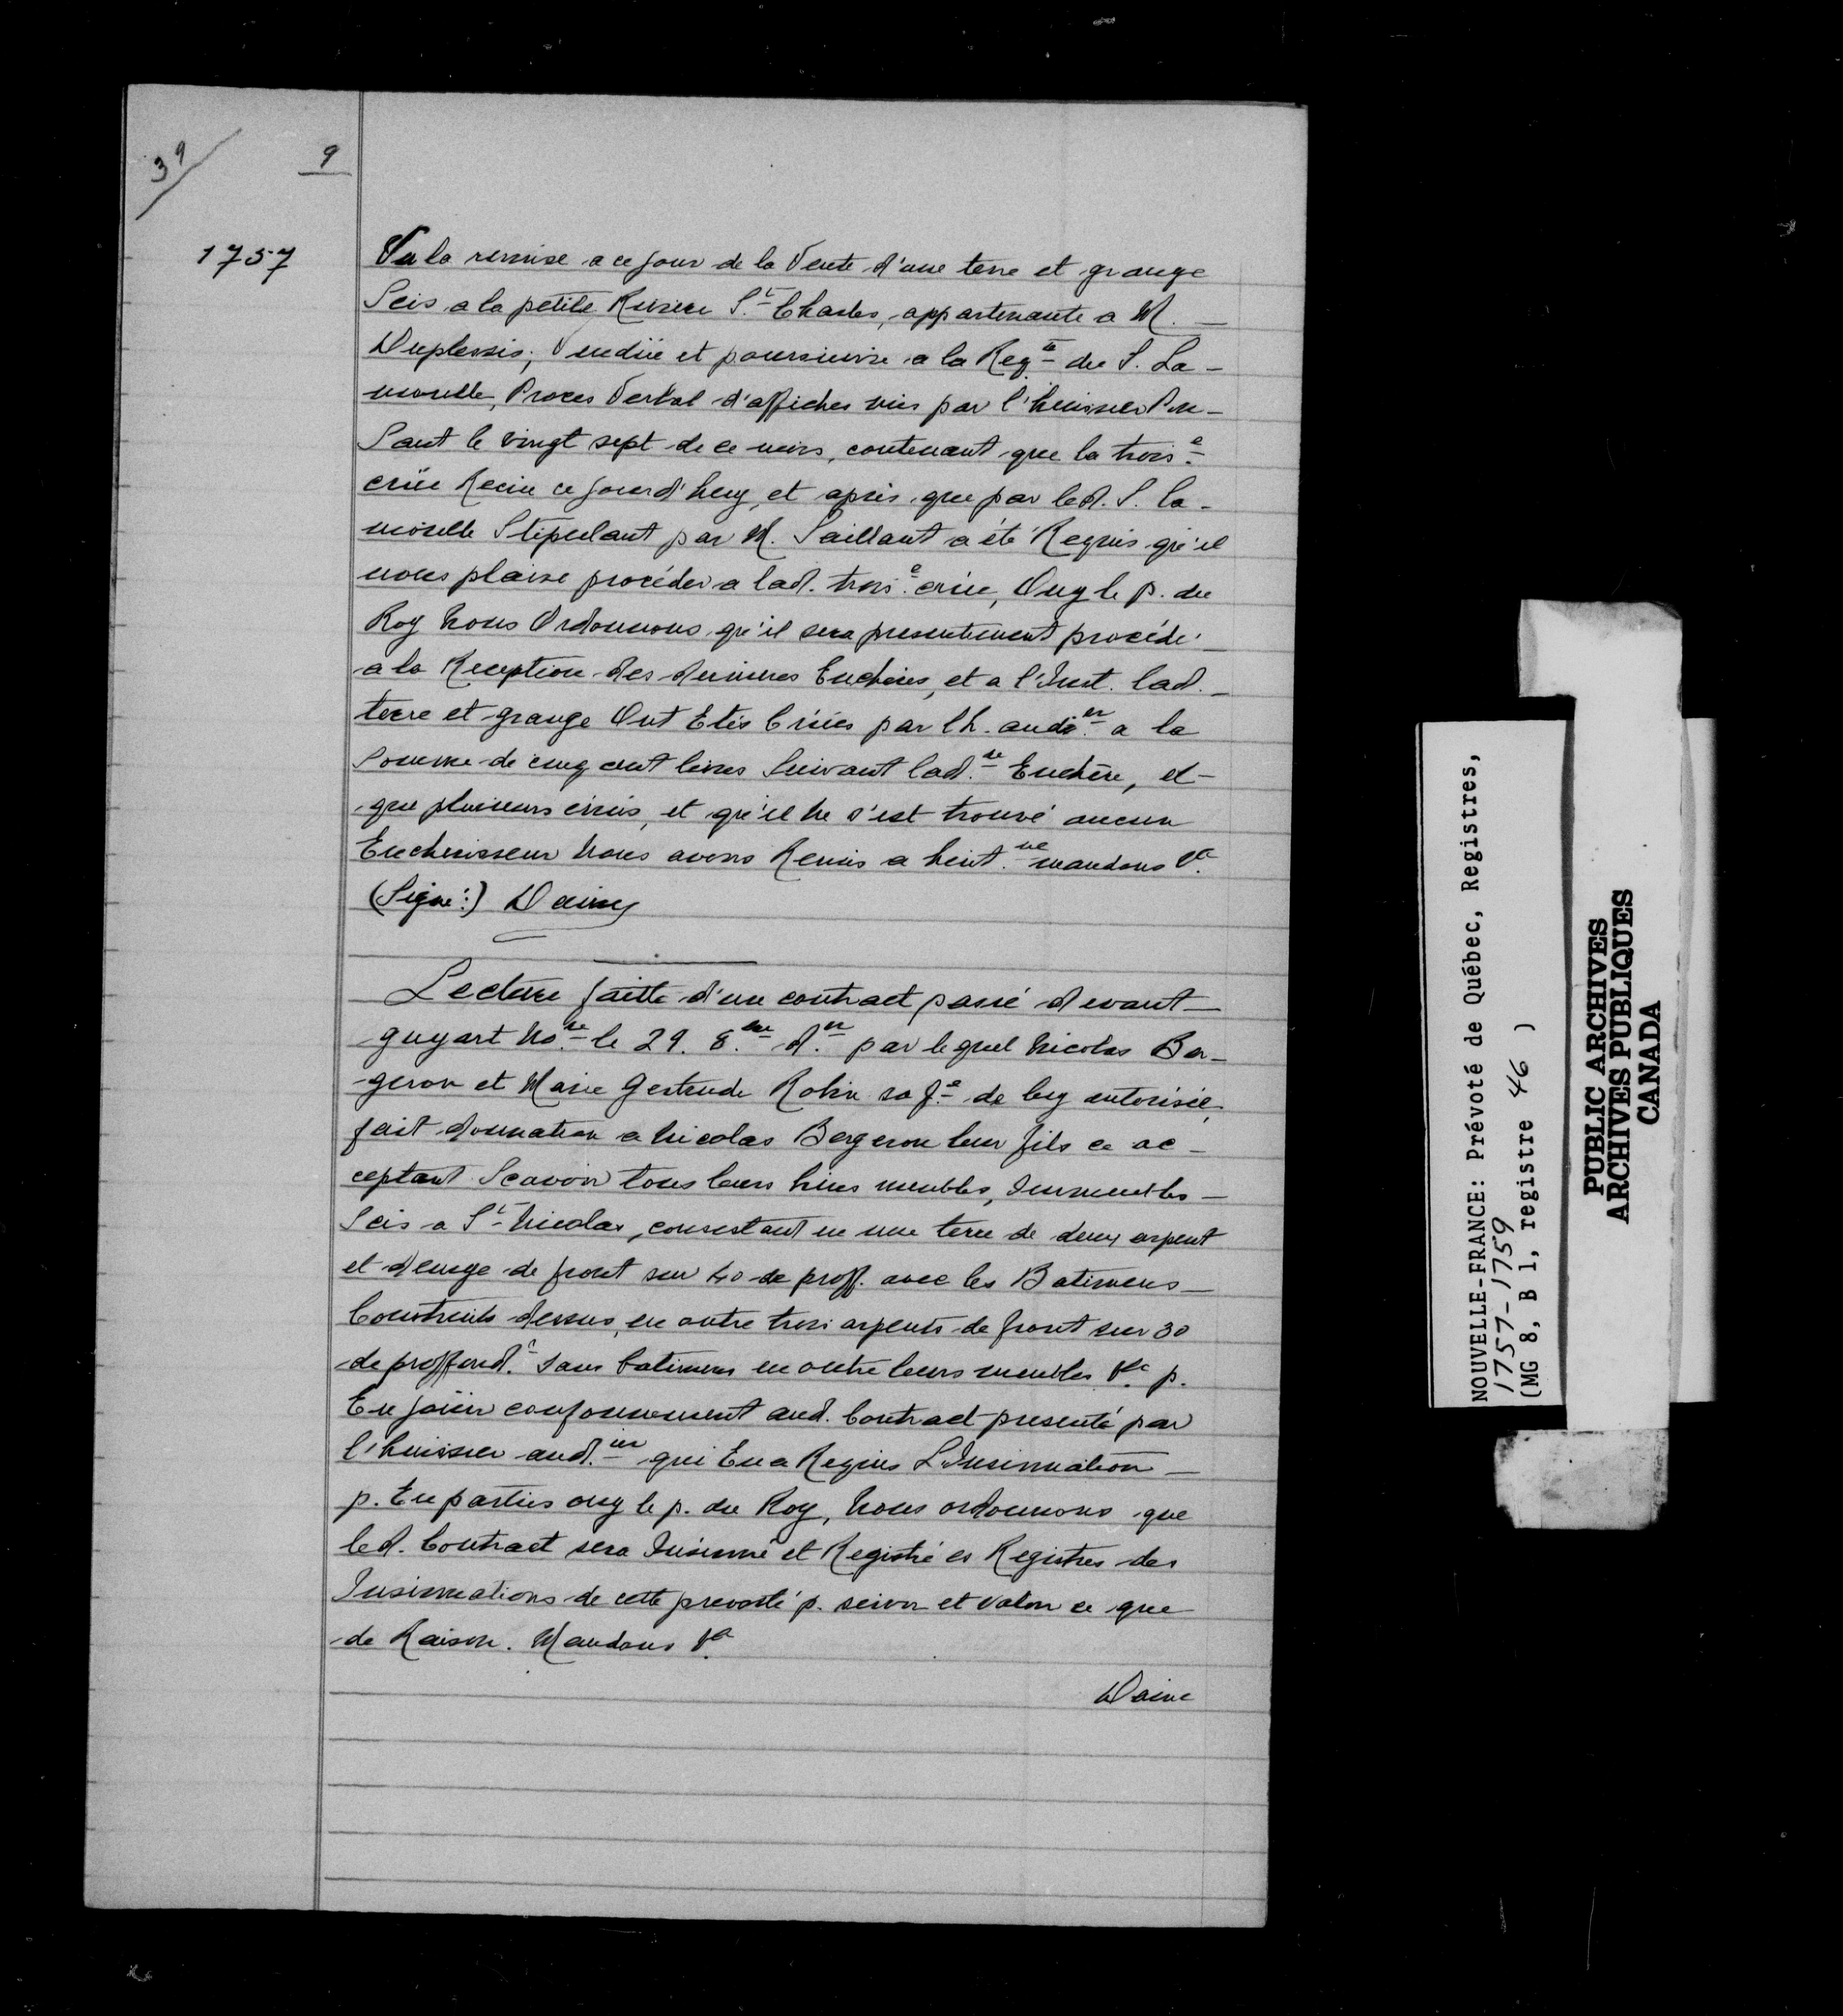 39
9
1757
Vu la remise a ce jour de la Vente d'une terre et grange
Scis a la petite Riviere S.t Charles, appartenante a M.
Duplessis; Vendüe et poursuivie a la Reqte du S. La-
morille, Proces Verbal d'affiches mis par l'huissier
Sant le vingt sept de ce mois, contenant que la trois.e
criée ce jourd'huy, et après que par led. S. la-
morille Stipulant par M. Saillant a été Requis qu'il
nous plaise procéder a lad. trois.e criée, Ouy le p. du
Roy Nous Ordonnons qu'il sera presentement procédé
a la Reception des dernieres Encheres, et a l'Inst. lad.
terre et grange Ont Etés Criées par l'h. audi.er a la
Somme de cinq cent livres Suivant lad. Enchère, et
que plusieurs criées, et qu'il ne s'est trouvé aucun
Encherisseur Nous avons Remis a huit.ne mandons &c.
(Signé:) Daine
Lecture faitte d'un contract passé devant
guyart No.re le 29. 8.bre d.er par lequel Nicolas Ber-
geron et Marie Gertrude Robin sa f.e de luy autorisée,
fait donnation a Nicolas Bergeron leur fils ce ac-
ceptant Scavoir tous leurs biens meubles, Immeubles
Scis a S.t Nicolas, consistant en une terre de deux arpent
et demye de front sur 40 de proff. avec les Batimens
Construits dessus, en outre trois arpents de front sur 30
de proffond.r sans batimens en outre leurs meubles &c p.
En joüir conformement aud. Contract presenté par
l'huissier aud.ier qui En a Requis L'Insinuation
p. Les parties ouy le p. du Roy, Nous ordonnons que
led. Contract sera Insinué et Registré es Registres des
Insinuations de cette prevosté p. servir et valoir ce que
de Raison. Mandons &c.
Daine
NOUVELLE-FRANCE: Prévoté de Québec, Registres,
1757-1759
(MG 8, B 1, registre 46 )
PUBLIC ARCHIVES
ARCHIVES PUBLIQUES
CANADA